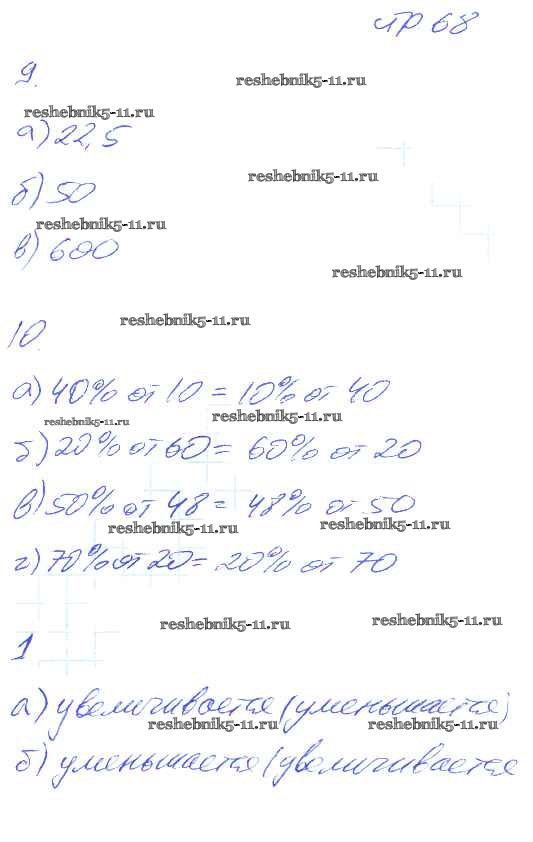 стр 68
9.
reshebnik5-11.ru
reshebnik5-11.ru
а) 22,5
reshebnik5-11.ru
б) 50
reshebnik5-11.ru
в) 600
reshebnik5-11.ru
reshebnik5-11.ru
10.
а) 40% от 10 = 10% от 40
reshebnik5-11.ru
reshebnik5-11.ru
б) 20% от 60 = 60% от 20
в) 50% от 48 = 48% от 50
reshebnik5-11.ru
reshebnik5-11.ru
г) 70% от 20 = 20% от 70
reshebnik5-11.ru
reshebnik5-11.ru
1
а) увеличивается (уменьшается)
reshebnik5-11.ru
reshebnik5-11.ru
б) уменьшается (увеличивается